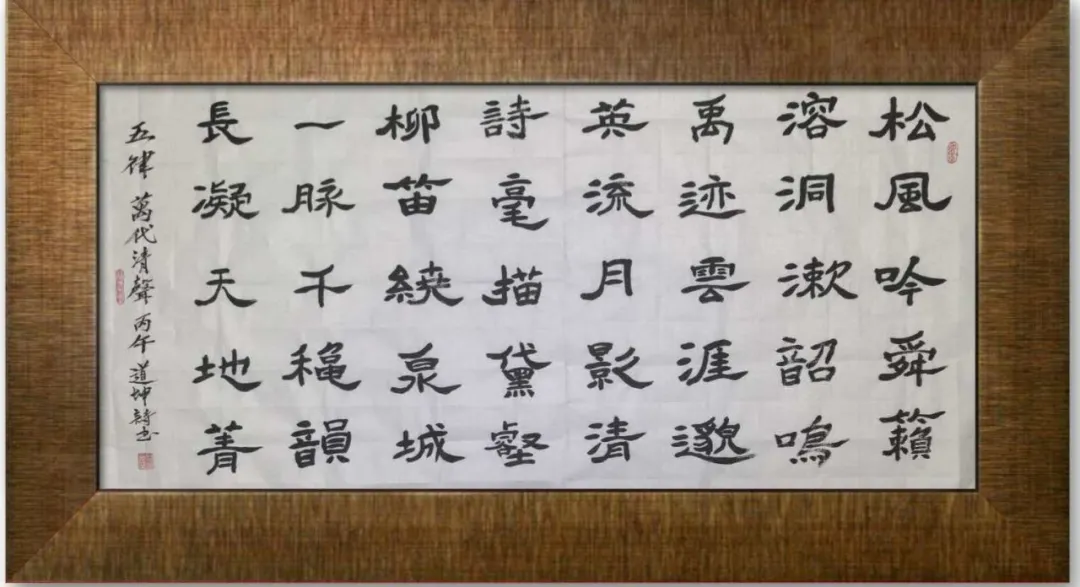 松風吟舜籟
溶洞漱韶鳴
禹迹雲涯邈
英流月影清
詩毫描黛壑
柳笛繞泉城
一脉千龝韻
長凝天地菁
五律 萬代清聲 丙午 道坤詩書